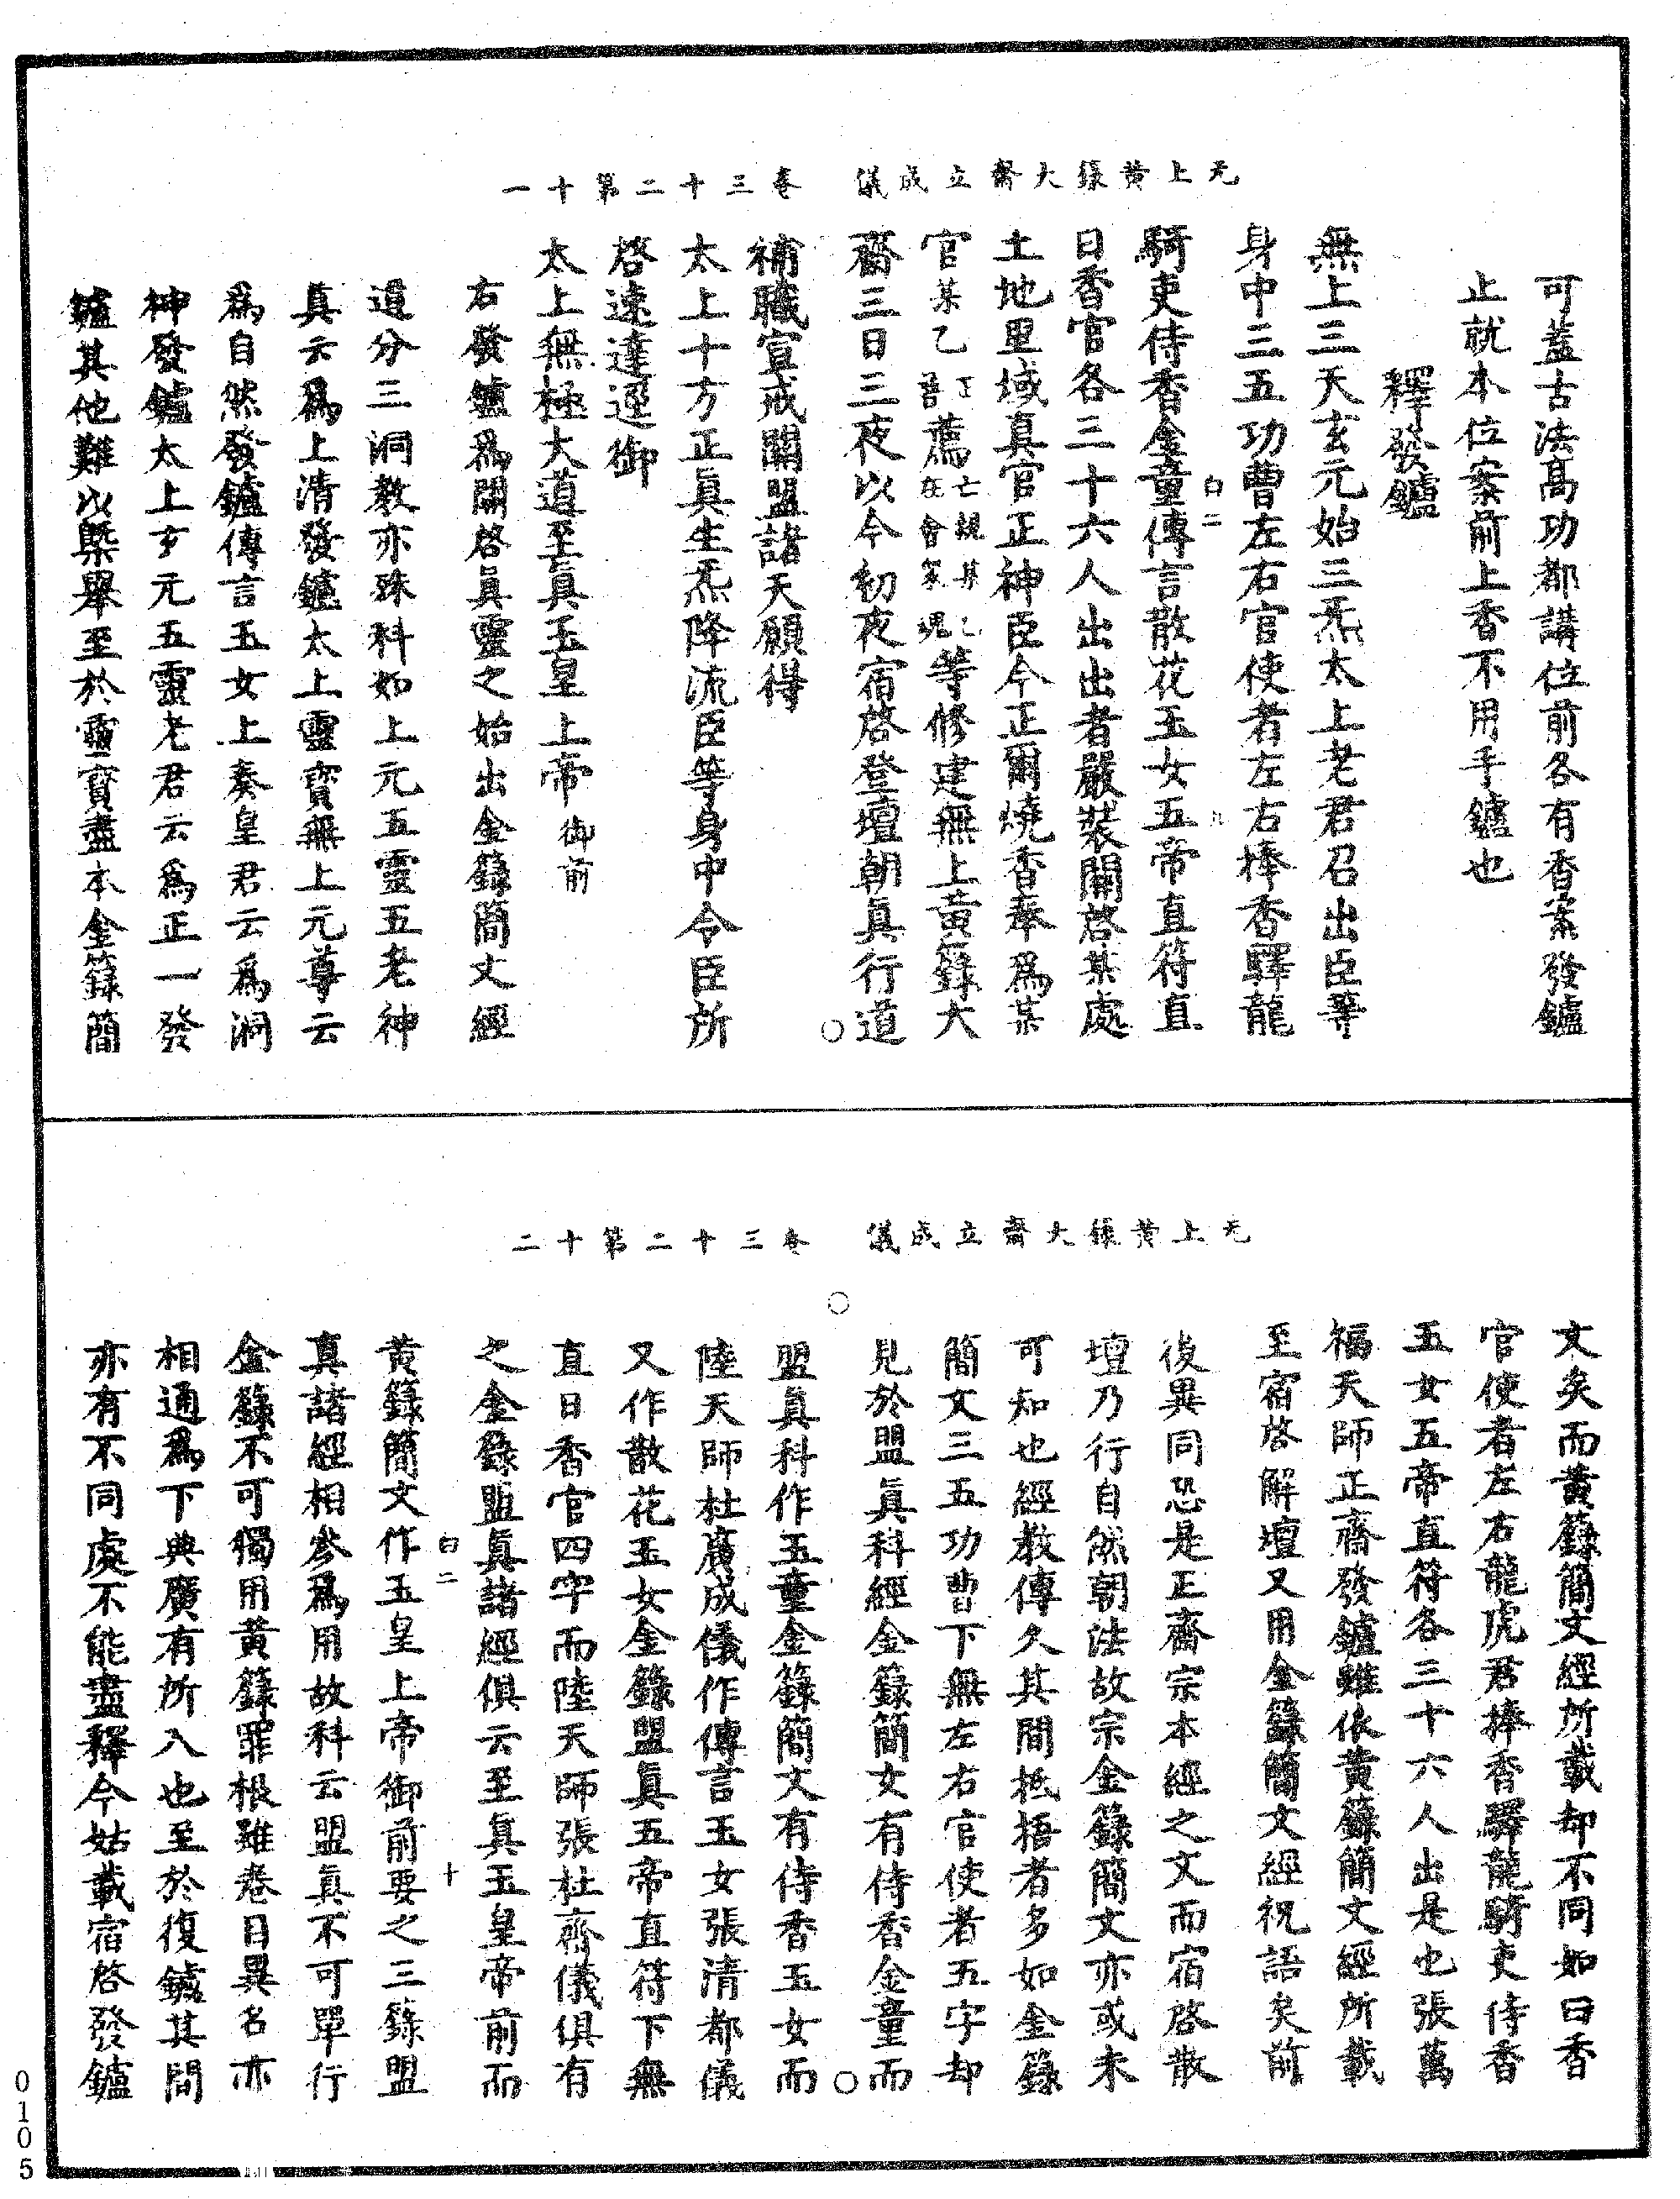 无上黃籙大齋立成儀　卷三十二第十一
可蓋古法高功都講位前各有香案發鑪
止就本位案前上香不用手鑪也
釋發鑪
無上三天玄元始三炁太上老君召出臣等
身中三五功曹左右官使者左右捧香驛龍
騎吏侍香金童傳言散花玉女五帝直符直
日香官各三十六人出出者嚴裝關啓某處
土地里域真官正神臣今正爾燒香奉爲某
官某乙薦亡親某乙等修建無上黃籙大
齋三日三夜以今初夜宿啓登壇朝眞行道
補職宣戒關盟諸天願得
太上十方正眞生炁降流臣等身中令臣所
啓速達逕御
太上無極大道至眞玉皇上帝御前
右發鑪爲關啓眞靈之始出金籙簡文經
道分三洞教亦殊科如上元五靈五老神
真云爲上清發鑪太上靈寳無上元尊云
爲自然發鑪傳言五女上奏皇君云爲洞
神發鑪太上玄元五靈老君云爲正一發
鑪其他難以槩舉至於靈寳盡本金籙簡
白二
九
无上黃籙大齋立成儀　卷三十二第十二
文矣而黃籙簡文經所載却不同如曰香
官使者左右龍虎君捧香驛龍騎吏侍香
五女五帝直符各三十六人出是也張萬
福天師正齋發鑪雖依黃籙簡文經所載
至宿啓解壇又用金籙簡文經祝語矣前
後異同恐是正齋宗本經之文而宿啓散
壇乃行自然朝法故宗金籙簡文亦或未
可知也經教傳久其間抵捂者多如金籙
簡文三五功曹下無左右官使者五字却
見於盟眞科經金籙簡文有侍香金童而
盟眞科作玉童金籙簡文有侍香玉女而
陸天師杜廣成儀作傳言玉女張清都儀
又作散花玉女金籙盟眞五帝直符下無
直日香官四字而陸天師張杜齋儀俱有
之金籙盟眞諸經俱云至眞玉皇帝前而
黃籙簡文作玉皇上帝御前要之三籙盟
真諸經相參爲用故科云盟眞不可單行
金籙不可獨用黃籙罪根雖卷目異名亦
相通爲下典廣有所入也至於復鑪其間
亦有不同處不能盡釋今姑載宿啓發鑪
白二
十
0105